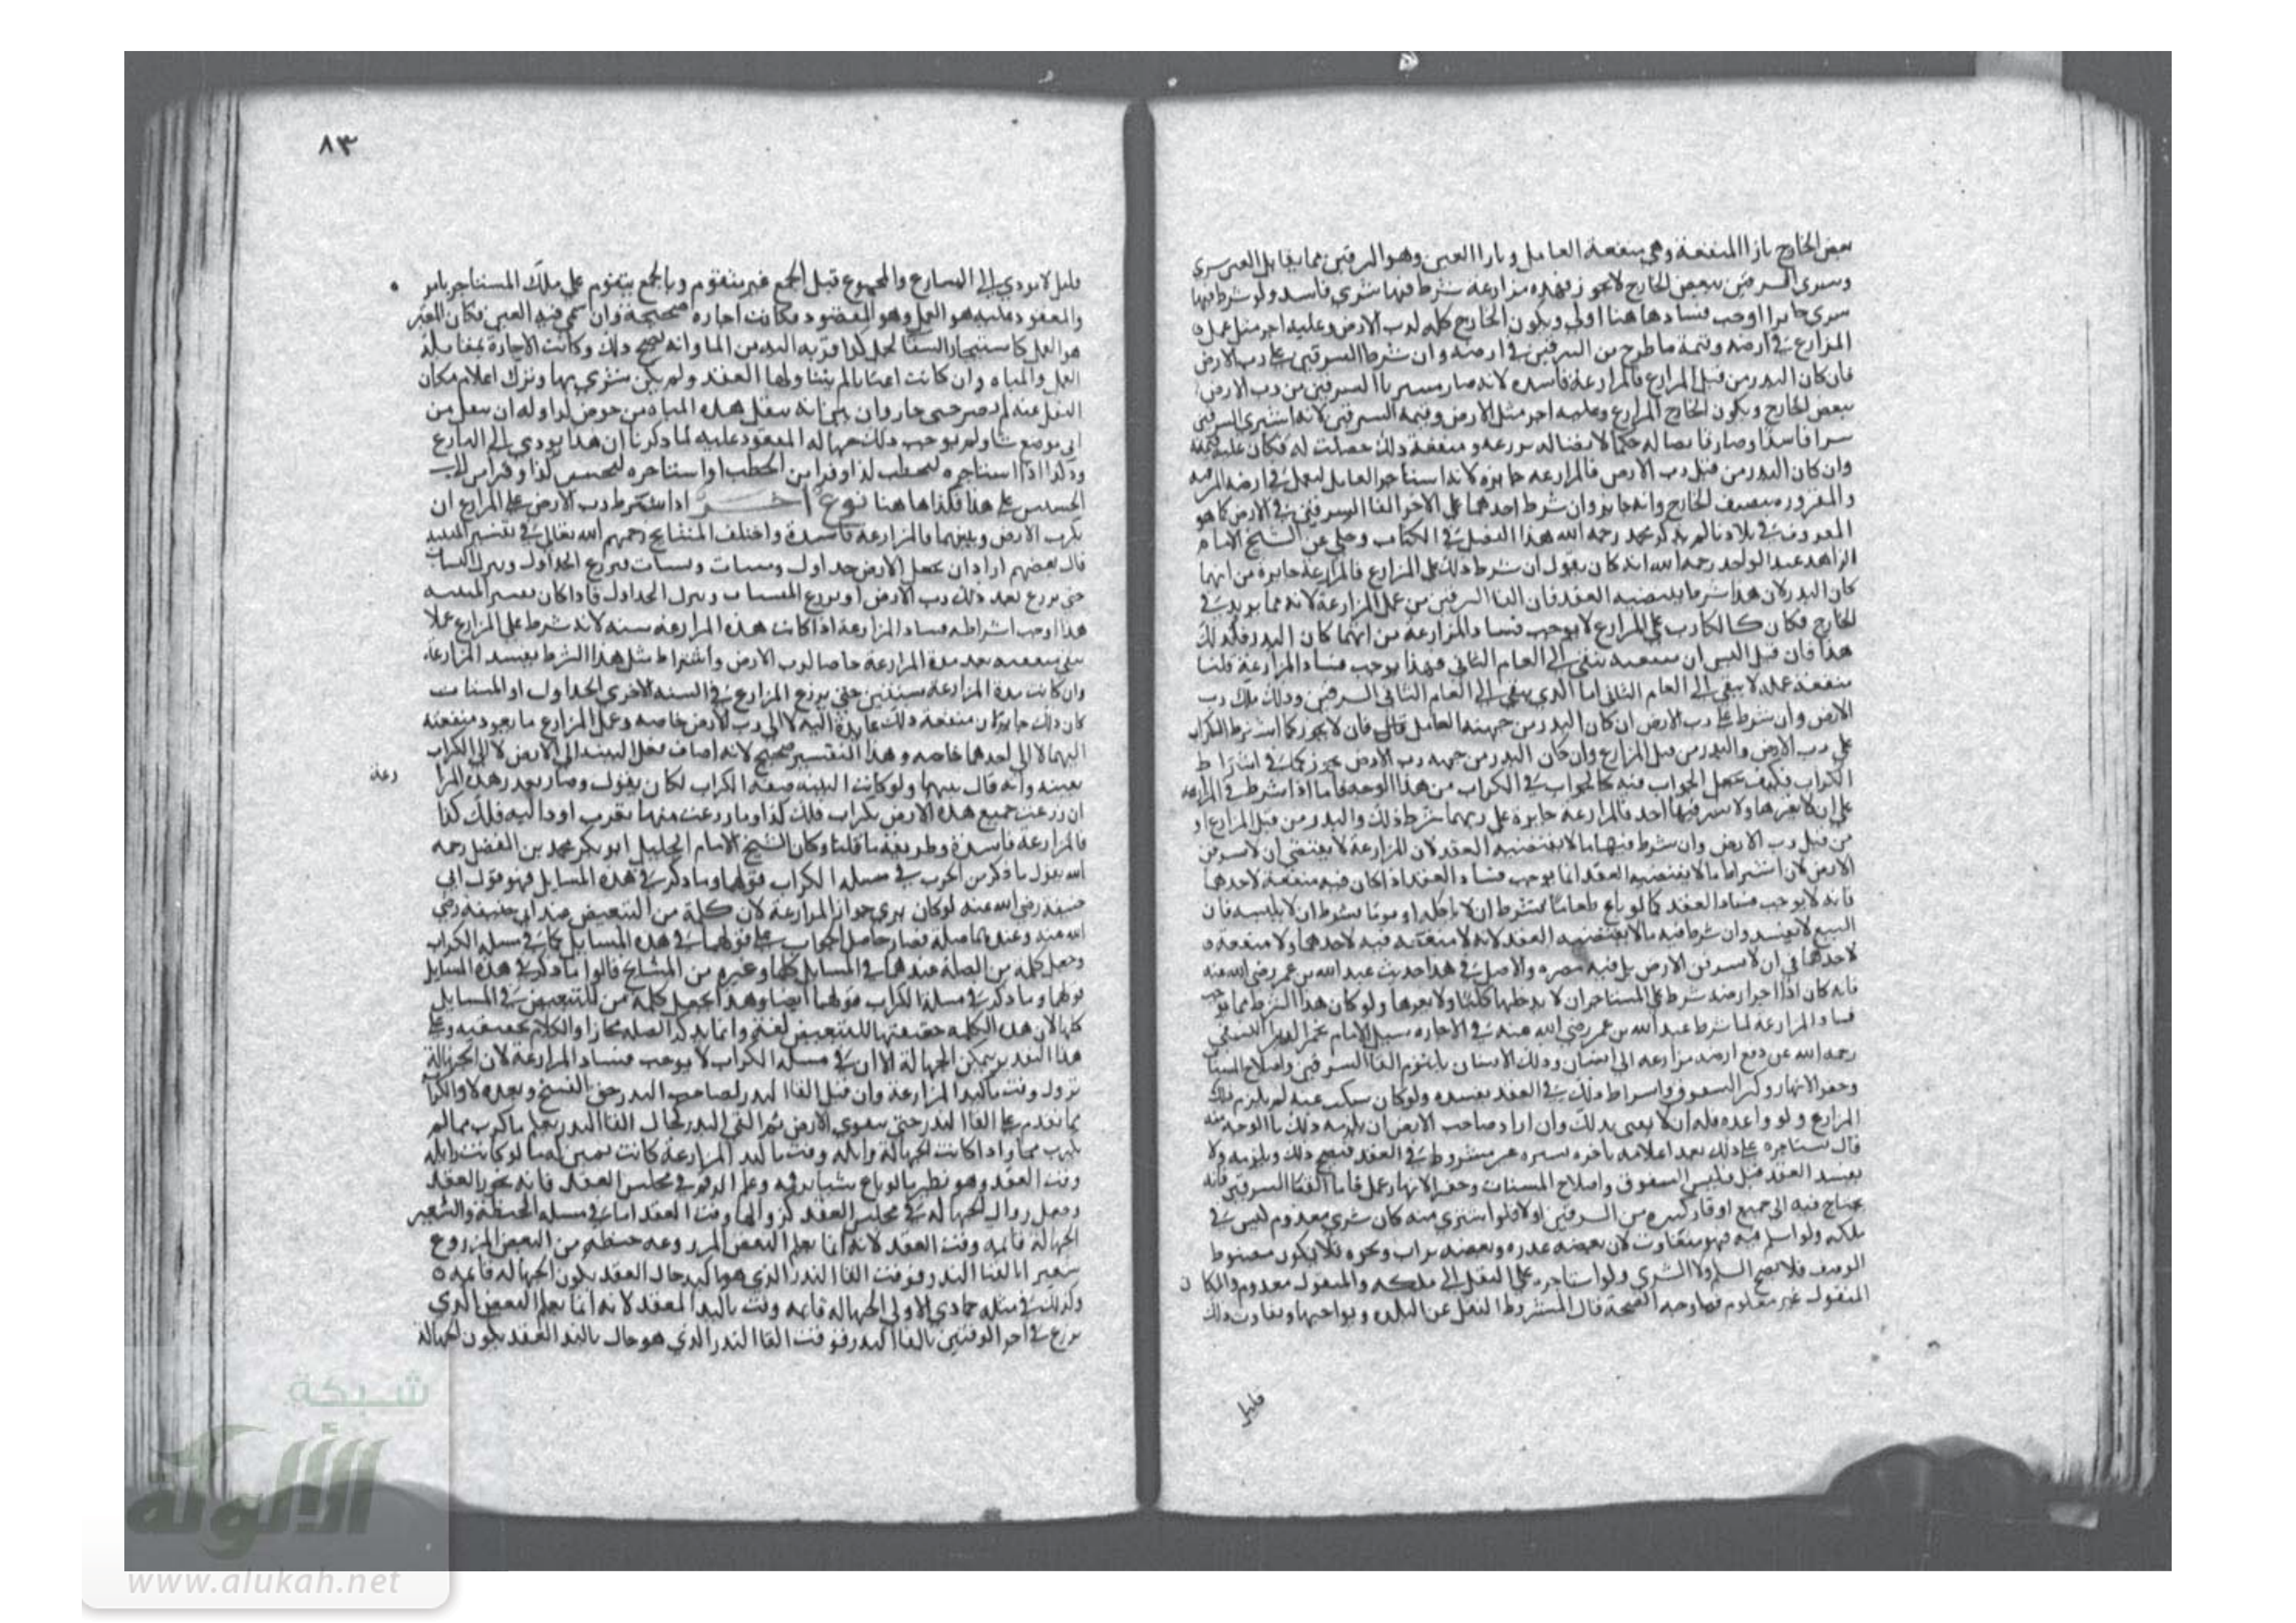 بعض الخارج بازا المنفعة وهي منفعة العامل وبازا العين وهو السرقين مما يقابل العين سرى
وسرى السرقين ببعض الخارج لا يجوز فهذه مزارعة شرط فيها شرى فاسد ولو شرط فيها
سرى جايرا اوجب فسادها هنا اولى ويكون الخارج كله لرب الارض وعليه اجر مثل عمل
المزارع في ارضه وقيمة ما طرح من السرقين في ارضه وان شرط السرقين على رب الارض
فان كان البدر من قبل المزارع فالمزارعة فاسده لانه صار مستريا السرقين من رب الارض
ببعض الخارج ويكون الخارج للمزارع وعليه اجر مثل الارض وقيمة السرقين لانه اشترى السرقين
سرا فاسدا وصار قابضا له حكما لاتصاله بزرعه ومنفعة ذلك حصلت له فكان عليه قيمته
وان كان البدر من قبل رب الارض فالمزارعه جايزه لانه استاجر العامل ليعمل في ارضه
بنصف الخارج وانه جايز وان شرط احدهما على الاخر القا السرقين في الارض كما هو
المعروف في بلادنا لم يذكر محمد رحمه الله هذا الفصل في الكتاب وحكي عن الشيخ الامام
الزاهد عبد الواحد رحمه الله انه كان يقول ان شرط ذلك على المزارع فالمزارعة جايزة من ايهما
كان البدر لان هذا شرط يقتضيه العقد فان القا السرقين من عمل المزارعة لانه مما يزيد في
الخارج فكان كالكراب على المزارع لا يوجب فساد المزارعة من ايهما كان البدر فكذلك
هذا فان قيل اليس ان منفعته تبقى الى العام الثاني فهذا يوجب فساد المزارعة قلنا
منفعة عمله لا يبقى الى العام الثاني اما الذي يبقى الى العام الثاني السرقين وذلك ملك رب
الارض وان شرط على رب الارض ان كان البدر من جهة العامل قال فان لا يجوز كما اشترط الكراب
على رب الارض والبدر من قبل المزارع وان كان البدر من جهه رب الارض يجوز كما في اشتراط
الكراب فكيف يجعل الجواب فيه كالجواب في الكراب من هذا الوجه فاما اذا شرط في المزارعة
على ان لا يعرها ولا يسرقنها احد فالمزارعة جايزة على ربهما شرط ذلك والبدر من قبل المزارع او
من قبل رب الارض وان شرط فيهما ما لا يقتضيه العقد لان المزارعة لا يقتضي ان لا يسرقن
الارض لان اشتراط ما لا يقتضيه العقد انما يوجب فساد العقد اذا كان فيه منفعة لاحدهما
فانه لا يوجب فساد العقد كما لو باع طعاما بشرط ان لا ياكله او ثوبا بشرط ان لا يلبسه فان
البيع لا يفسد وان شرط فيه ما لا يقتضيه العقد لانه لا منفعة فيه لاحدهما ولا منفعة
لاحدهما في ان لا يسرقن الارض بل فيه مضره والاصل في هذا حديث عبد الله بن عمر رضي الله عنه
فانه كان اذا اجر ارضه شرط على المستاجر ان لا يدخلها كلبا ولا يعرها ولو كان هذا الشرط مما يوجب
فساد المزارعة لما شرط عبد الله بن عمر رضي الله عنه في الاجاره سيل الامام نجم الدين النسفي
رحمه الله عن دفع ارضه مزارعه الى انسان وذلك الانسان يا القا السرقين واصلاح المسناة
وحفر الانهار واشتراط ذلك في العقد يفسده ولو كان سكت عنه لم يلزم ذلك
المزارع ولو واعده فله ان لا يفي بذلك وان اراد صاحب الارض ان يلزمه ذلك ما الوجه فيه
قال يستاجره على ذلك بعد اعلامه باجره يسيره غير مشروط في العقد فيصح ذلك ويلزمه ولا
يفسد العقد قيل فليس واصلاح المسنات وحفر الانهار عمل فاما القا السرقين فانه
يحتاج فيه الى جميع اوقار كثيره من السرقين اولا فلو اشترى منه كان شرى معدوم ليس في
ملكه ولو اسلم فيه فهو متفاوت لان بعضه عذره وبعضه تراب ونحوه فلا يكون مضبوط
الوصف فلا يصح السلم ولا الشرى ولو استاجره على النقل الى ملكه والمنقول معدوم والمكان
المنقول غير معلوم فما وجه الصحة قال المشروط النقل عن البلده ونواحيها وتفاوت ذلك
قليل
٨٣
قليل لا يودي الى المنازع والمجموع قبل الجمع غير متقوم وبالجمع يتقوم على ملك المستاجر
والمعقود عليه هو العمل وهو المقصود فكانت اجاره صحيحة وان سمى فيه العين فكان المعتبر
هو العمل كاستيجار السقا لحمل كذا قربه اليه من الما وانه يصح ذلك وكانت الاجارة بمقابلة
العمل والمياه وان كانت اعيانا لم يتناولها العقد ولم يكن مشترى بها وترك اعلام مكان
النقل عنه لم يضر حتى جاز وان بين انه ينقل هذه المياه من حوض كذا وله ان ينقل من
اي موضع شا ولم يوجب ذلك جهالة المعقود عليه لما ذكرنا ان هذا يودي الى المنازع
وكذا اذا استاجره ليحطب كذا وقرا من الحطب او استاجره ليحتش كذا وقرا من
الحشيش على هذا فكذا هاهنا نوع اخر اذا اشترط رب الارض على المزارع ان
يكرب الارض ويثنيها فالمزارعة فاسدة واختلف المشايخ رحمهم الله تعالى في تفسير التثنيه
قال بعضهم اراد ان يجعل الارض جداول ومسنات فيزرع الجداول ويترك المسنات
حتى يزرع بعد ذلك رب الارض او يزرع المسنات ويترك الجداول فاذا كان تفسير التثنيه
هذا اوجب اشراطه فساد المزارعة اذا كانت هذه المزارعة سنه لانه شرط على المزارع عملا
يبقى منفعته بعد مدة المزارعة خاصا لرب الارض واشتراط مثل هذا الشرط يفسد المزارعة
وان كانت مدة المزارعة سنتين حتى يزرع المزارع في السنه الاخرى الجداول او المسنات
كان ذلك جايزا لان منفعة ذلك عايدة اليه لا الى رب الارض خاصه وعلى المزارع ما يعود منفعته
اليهما لا الى احدهما خاصه وهذا التفسير صحيح لانه اضاف فعل التثنيه الى الارض لا الى الكراب
بعينه وانه قال يثنيها ولو كانت التثنيه صفة الكراب لكان يقول وصار بعد هذه المزا
رعة
ان زرعت جميع هذه الارض بكراب فلك كذا وما زرعت منها بغير كراب او داليه فلك كذا
فالمزارعة فاسدة وطريقه ما قلنا وكان الشيخ الامام الجليل ابو بكر محمد بن الفضل رحمه
الله يقول ما ذكر من الحرب في مسله الكراب قولهما وما ذكر في هذه المسايل فهو قول ابي
حنيفه رضي الله عنه لو كان يرى جواز المزارعة لان كلمة من للتبعيض عند ابي حنيفه رضي
الله عنه وعندهما صلة فصار حاصل الجواب على قولهما في هذه المسايل كما في مسله الكراب
وجعل كلمة من الصلة عندهما في المسايل كلها وغيره من المشايخ قالوا ما ذكر في هذه المسايل
قولهما وما ذكر في مسلة الكراب قولهما ايضا وهذا لجعل كلمة من للتبعيض في المسايل
كلها لان هذه الكلمه حقيقتها للتبعيض لغة وانما يذكر الصله مجازا والكلام بحقيقته وعلى
هذا التقدير تمكن الجهالة الا ان في مسله الكراب لا يوجب فساد المزارعة لان الجهالة
تزول وقت تاكد المزارعة وان قبل القا البدر لصاحب البدر حق الفسخ وبعده لا والكراب
مما تقدم على القا البدر حتى يستوي الارض ثم القى البدر فحال القا البدر يعلم ما كرب مما لم
يكرب واذا كانت الجهالة زايلة وقت تاكد المزارعة كانت بمنزلة ما لو كانت زايله
وقت العقد وهو نظير ما لو باع شيا برقمه وعلم الرقم في مجلس العقد فانه يجوز العقد
ويجعل زوال الجهالة في مجلس العقد كزوالها وقت العقد اما في مسله الحنطة والشعير
الجهالة قايمه وقت العقد لانه انما يعلم البعض المزروعه حنطه من البعض المزروع
شعيرا بالقا البدر فوقت القا البدر الذي هو تاكيد حال العقد يكون الجهاله قايمه
وكذلك في مسله جمادي الاولى الجهاله قايمه وقت تاكد العقد لانه انما يعلم البعض الذي
يزرع في احد الوقتين بالقا البدر فوقت القا البدر الذي هو حال تاكد العقد يكون الجهالة
شبكة
الألوكة
www.alukah.net